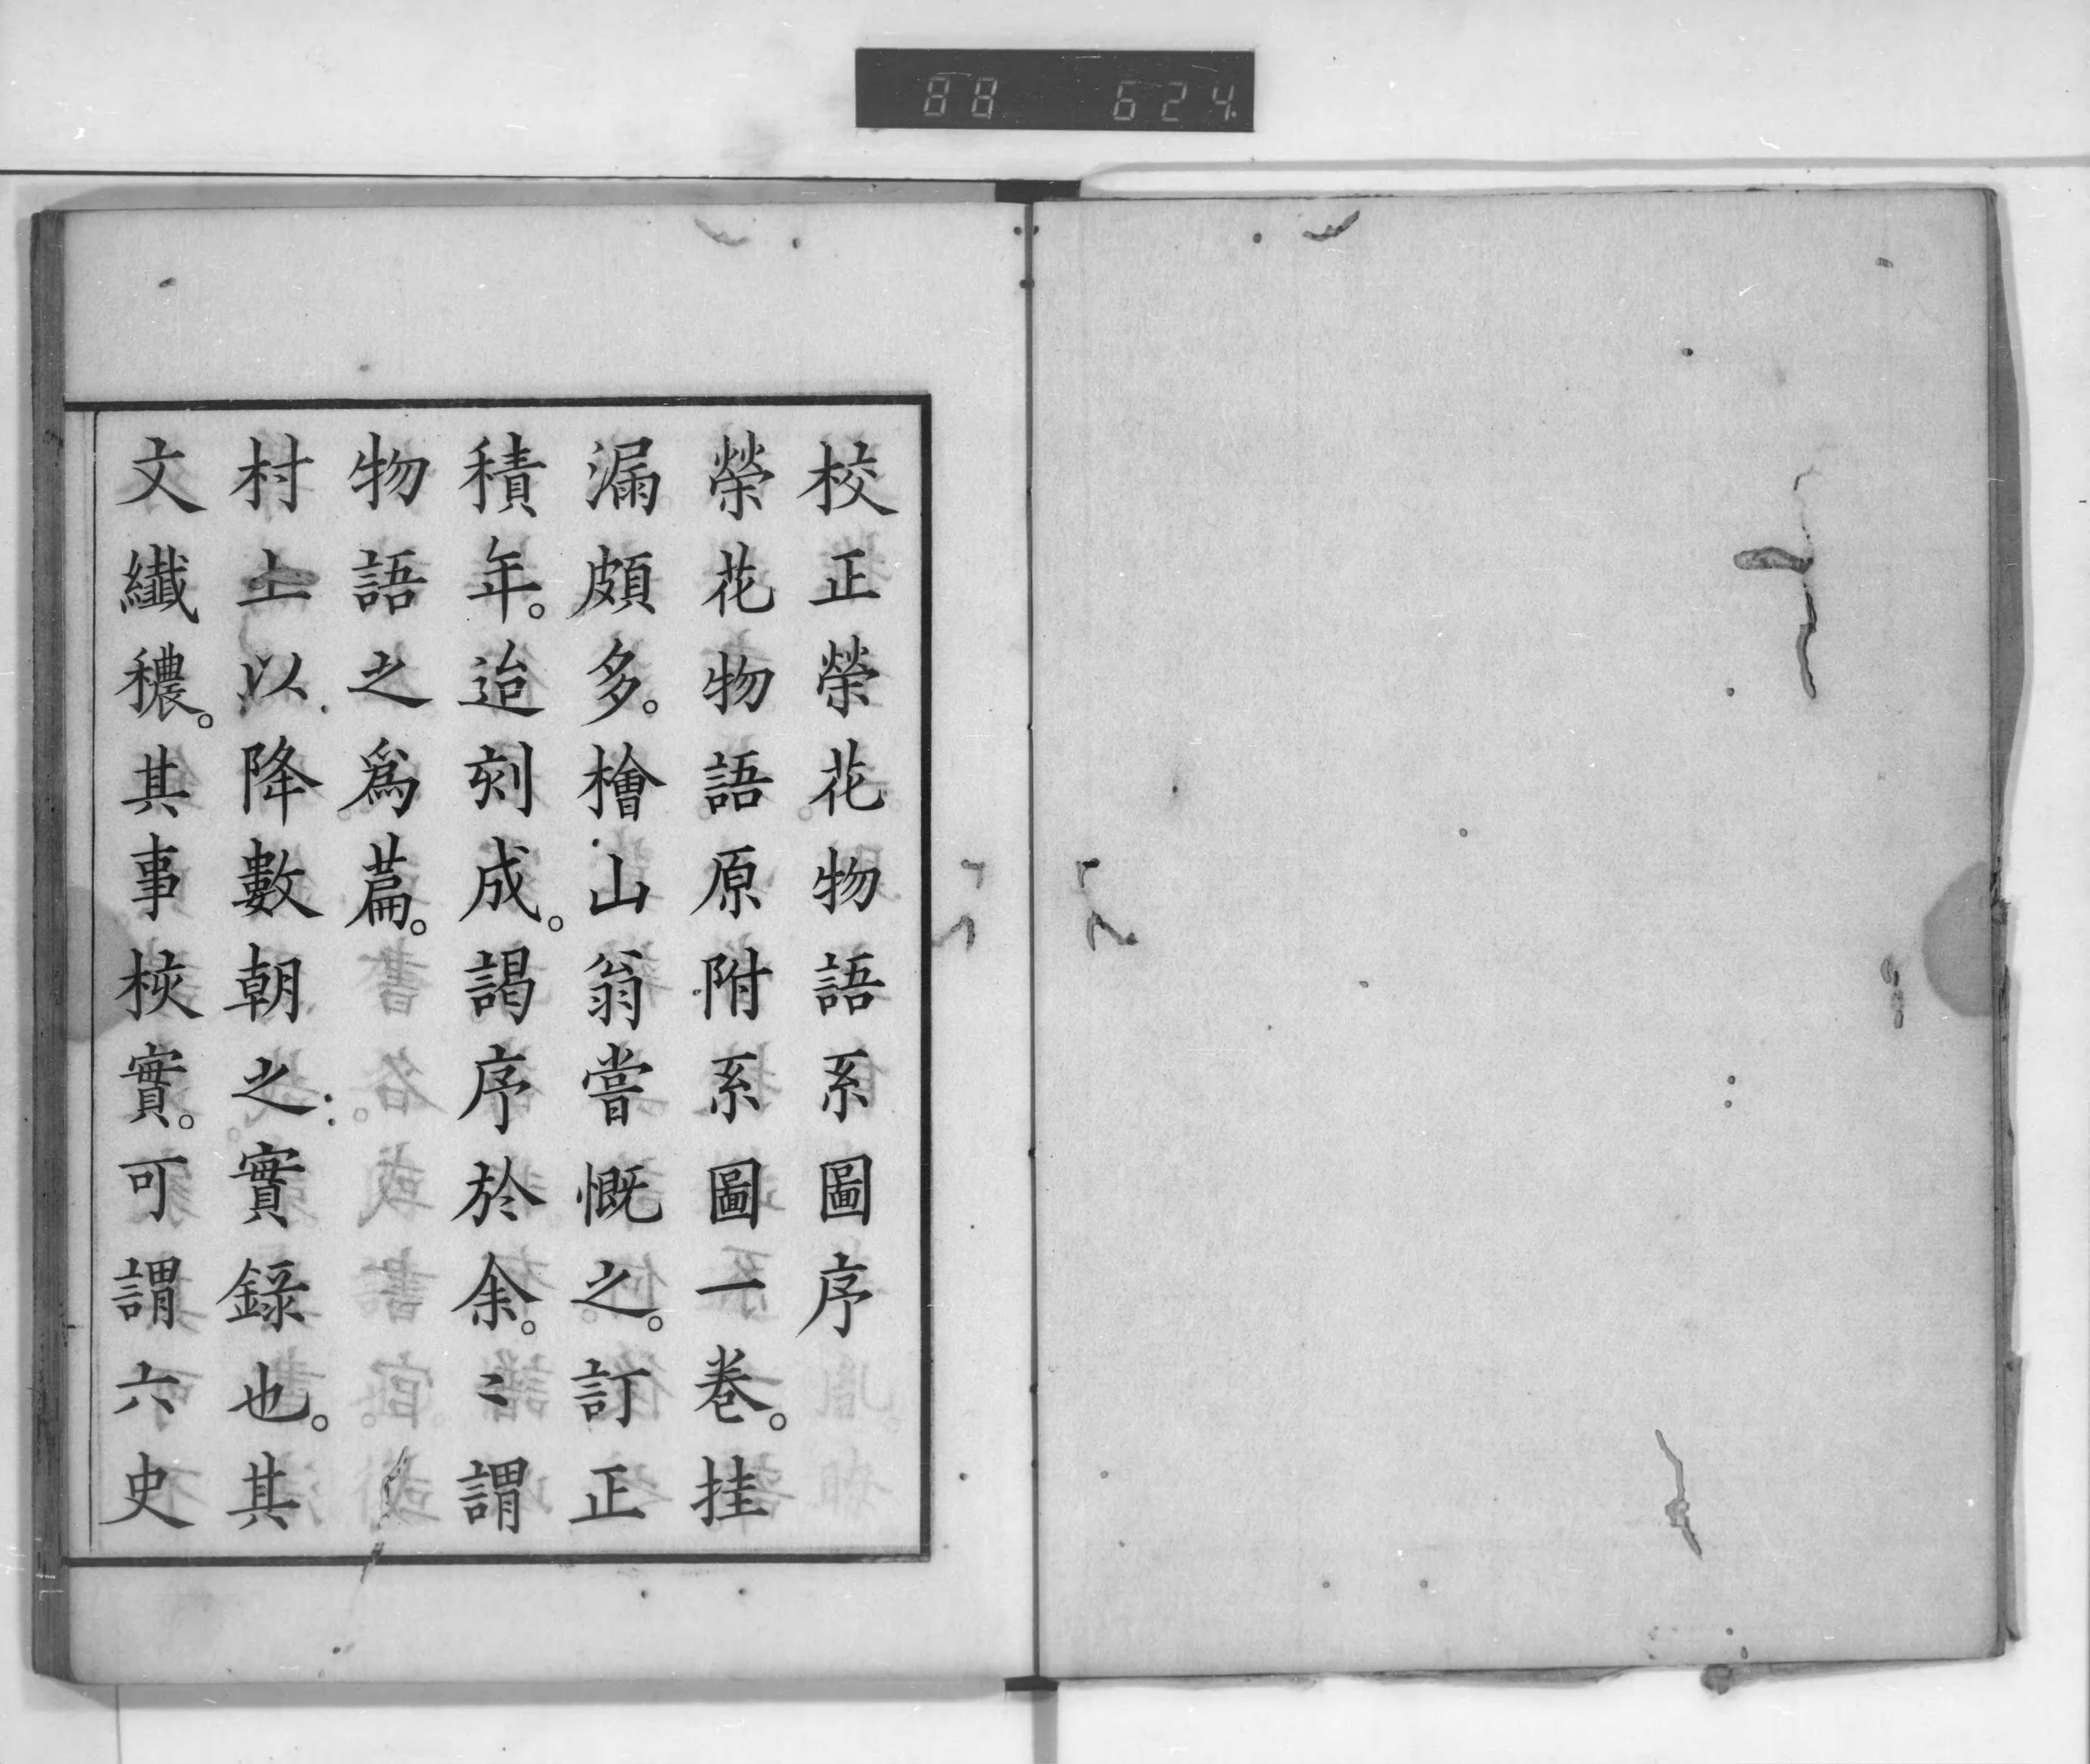 88 624
校正榮花物語系圖序
榮花物語原附系圖一卷。挂
漏頗多。檜山翁嘗慨之。訂正
積年。迨刻成。謁序於余。〻謂
物語之爲萹。
村上以降數朝之實錄也。其
文纖穠。其事核實。可謂六史